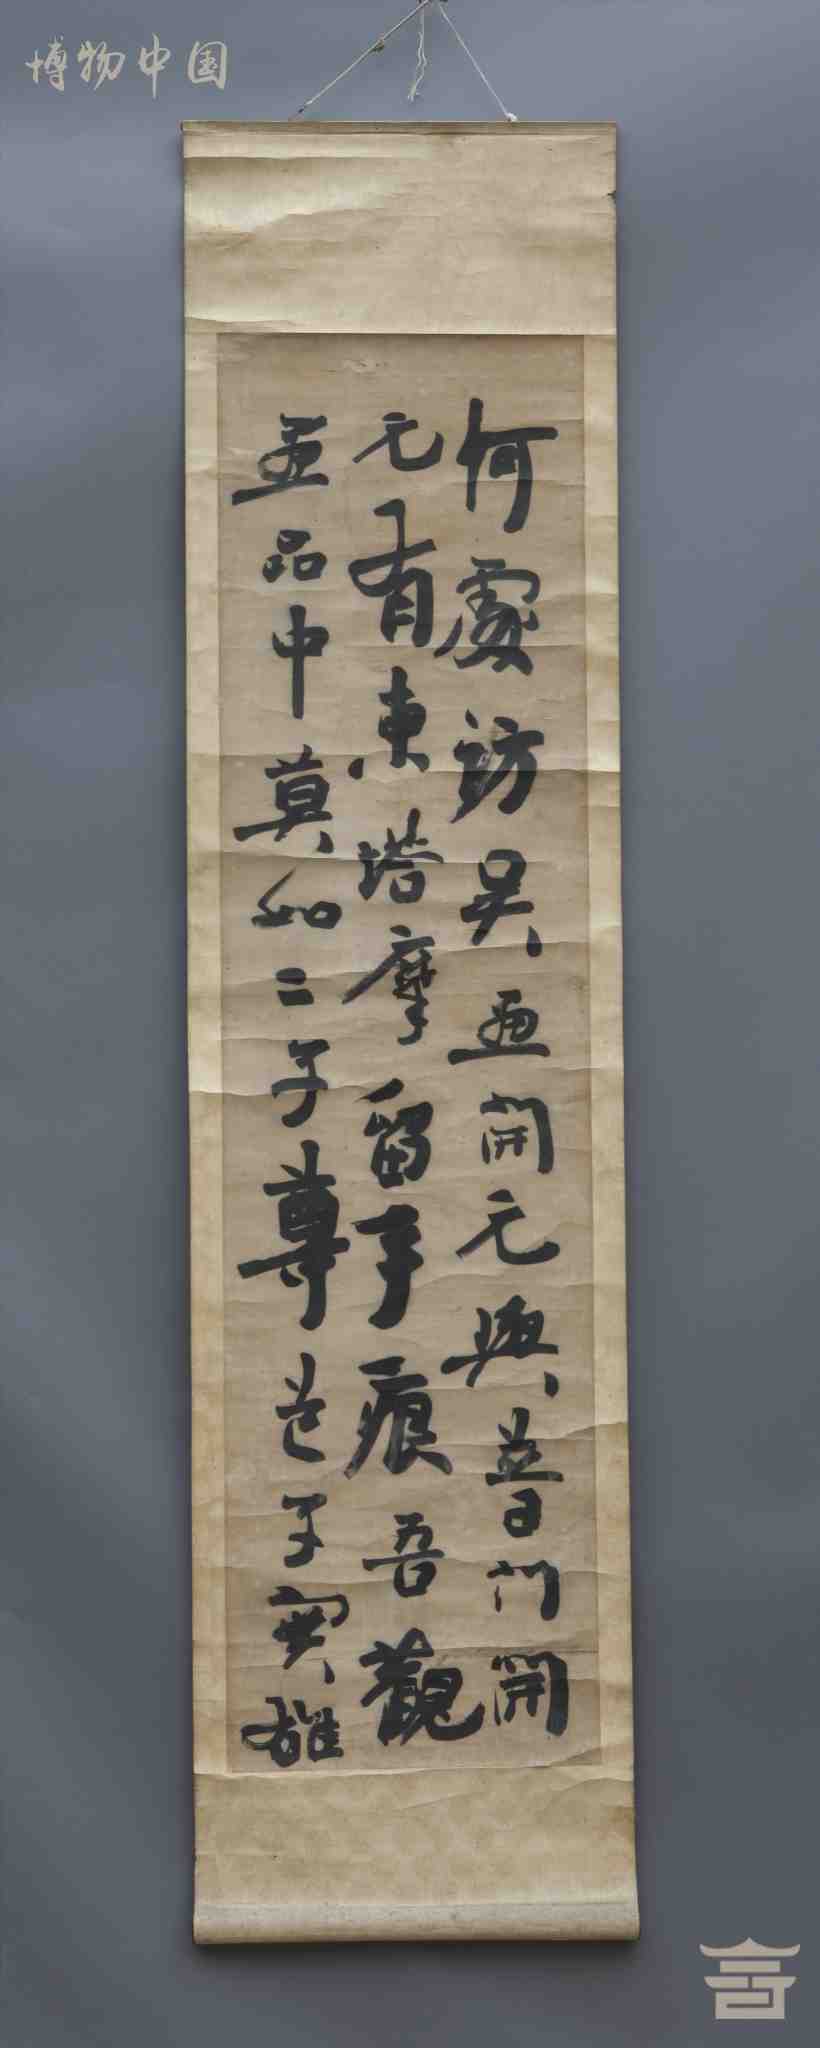 博物中国
何處訪吳畫開元與普門開
元有東塔摩留手痕吾觀
畫品中莫如二子尊道子實雄